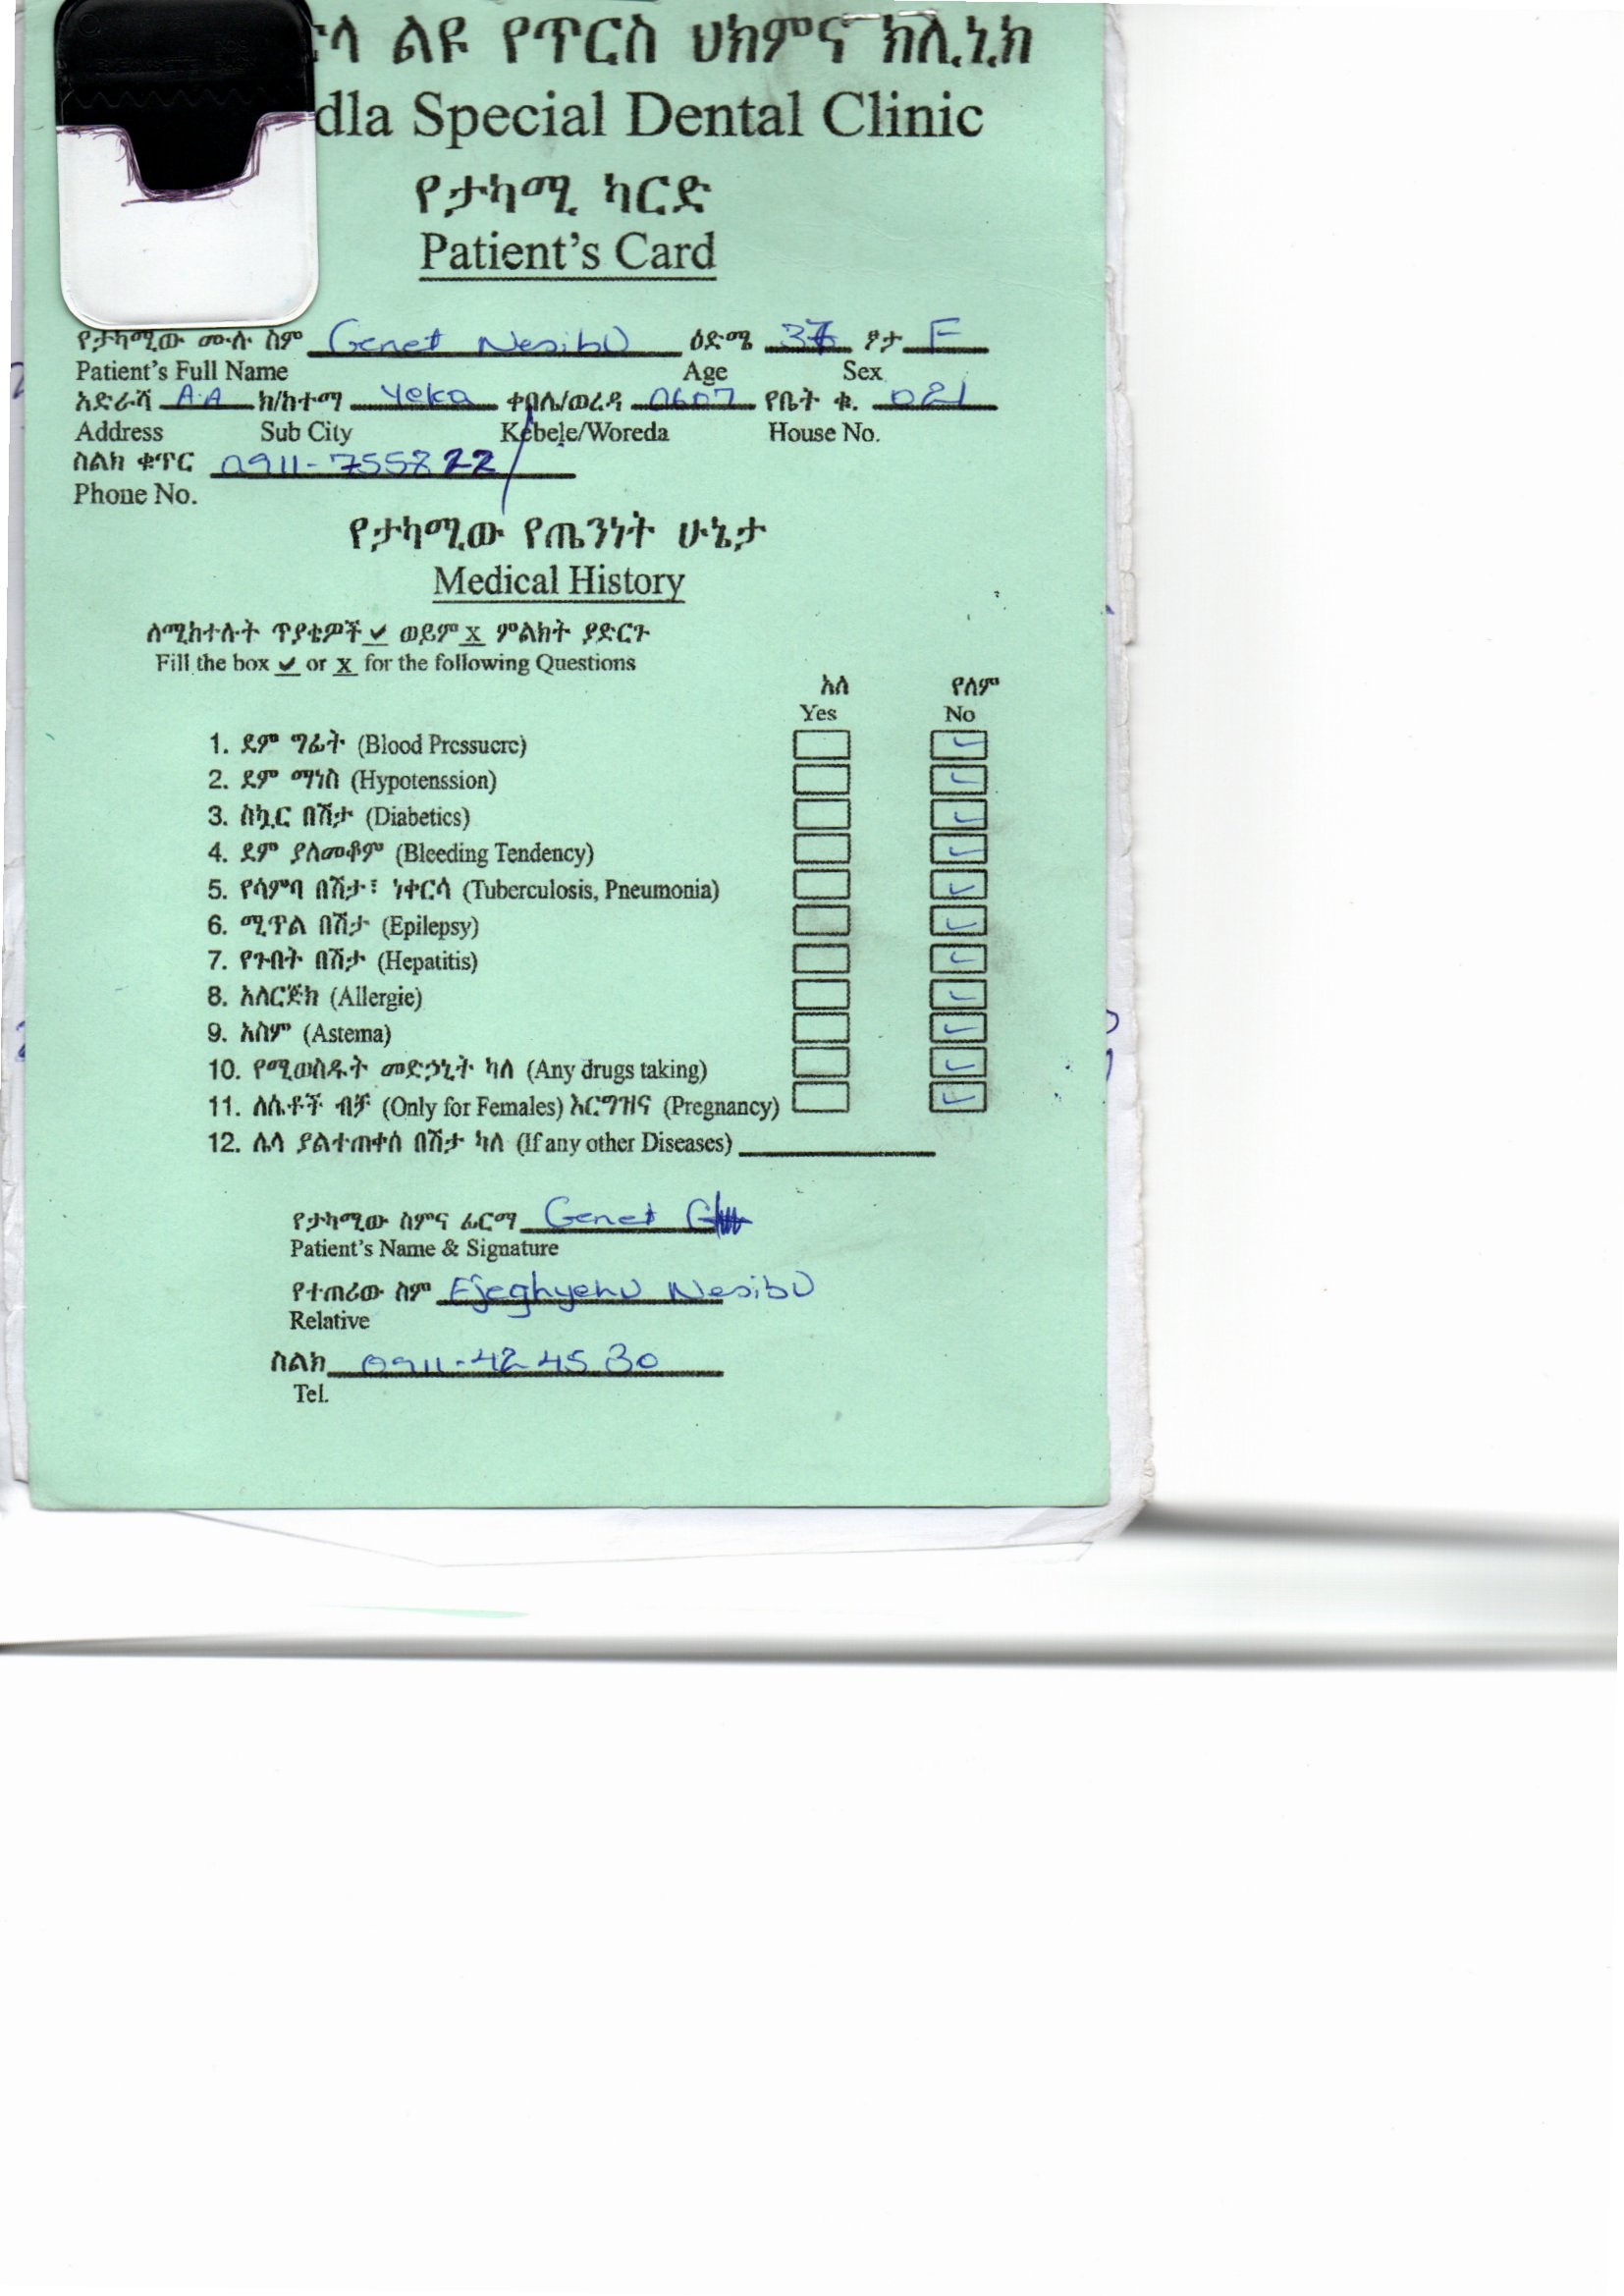 ልዩ የጥርስ ህክምና ክሊኒክ
dla Special Dental Clinic
የታካሚ ካርድ
Patient's Card
የታካሚው ሙሉ ስም Genet Nesibu ዕድሜ ፆታ F
Patient's Full Name Age Sex
አድራሻ A.A ክ/ከተማ Yeka ቀበሌ/ወረዳ 0607 የቤት ቁ. 021
Address Sub City Kebele/Woreda House No.
ስልክ ቁጥር 0911-755822
Phone No.
የታካሚው የጤንነት ሁኔታ
Medical History
ለሚከተሉት ጥያቄዎች ✓ ወይም x ምልክት ያድርጉ
Fill the box ✓ or x for the following Questions
አለ የለም
Yes No
1. ደም ግፊት (Blood Pressuere) ✓
2. ደም ማነስ (Hypotenssion) ✓
3. ስኳር በሽታ (Diabetics) ✓
4. ደም ያለመቆም (Bleeding Tendency) ✓
5. የሳምባ በሽታ፣ ነቀርሳ (Tuberculosis, Pneumonia) ✓
6. ሚጥል በሽታ (Epilepsy) ✓
7. የጉበት በሽታ (Hepatitis) ✓
8. አለርጅክ (Allergie) ✓
9. አስም (Astema) ✓
10. የሚወስዱት መድኃኒት ካለ (Any drugs taking) ✓
11. ለሴቶች ብቻ (Only for Females) እርግዝና (Pregnancy) ✓
12. ሌላ ያልተጠቀሰ በሽታ ካለ (If any other Diseases)
የታካሚው ስምና ፊርማ Genet
Patient's Name & Signature
የተጠሪው ስም Ejeghyehu Nesibu
Relative
ስልክ 0911-42 45 30
Tel.